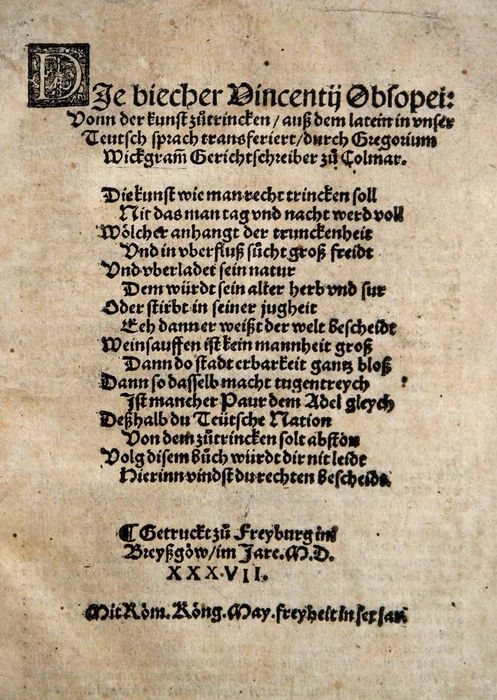 DJe biecher Vincentij Obsopei:
Vonn der kunst zůtrincken / auß dem latein in vnser
Teutsch sprach transferiert / durch Gregorium
Wickgram̃ Gerichtschreiber zů Colmar.
Die kunst wie man recht trincken soll
Nit das man tag vnd nacht werd voll
Wölcher anhangt der trunckenheit
Vnd in vberfluß sůcht groß freidt
Vnd vberladet sein natur
Dem würdt sein alter herb vnd sur
Oder stirbt in seiner jugheit
Eeh dann er weißt der welt bescheidt
Weinsauffen ist kein mannheit groß
Dann do stadt erbarkeit gantz bloß
Dann so dasselb macht tugentreych
Ist mancher Paur dem Adel gleych
Deßhalb du Teütsche Nation
Von dem zůtrincken solt abston
Volg disem bůch würdt dir nit leidt
Hierinn vindst du rechten bescheidt.
¶ Getruckt zů Freyburg im
Breyßgöw / im Jare. M. D.
XXXVII.
Mit Röm. Köng. May. freyheit in sex jan